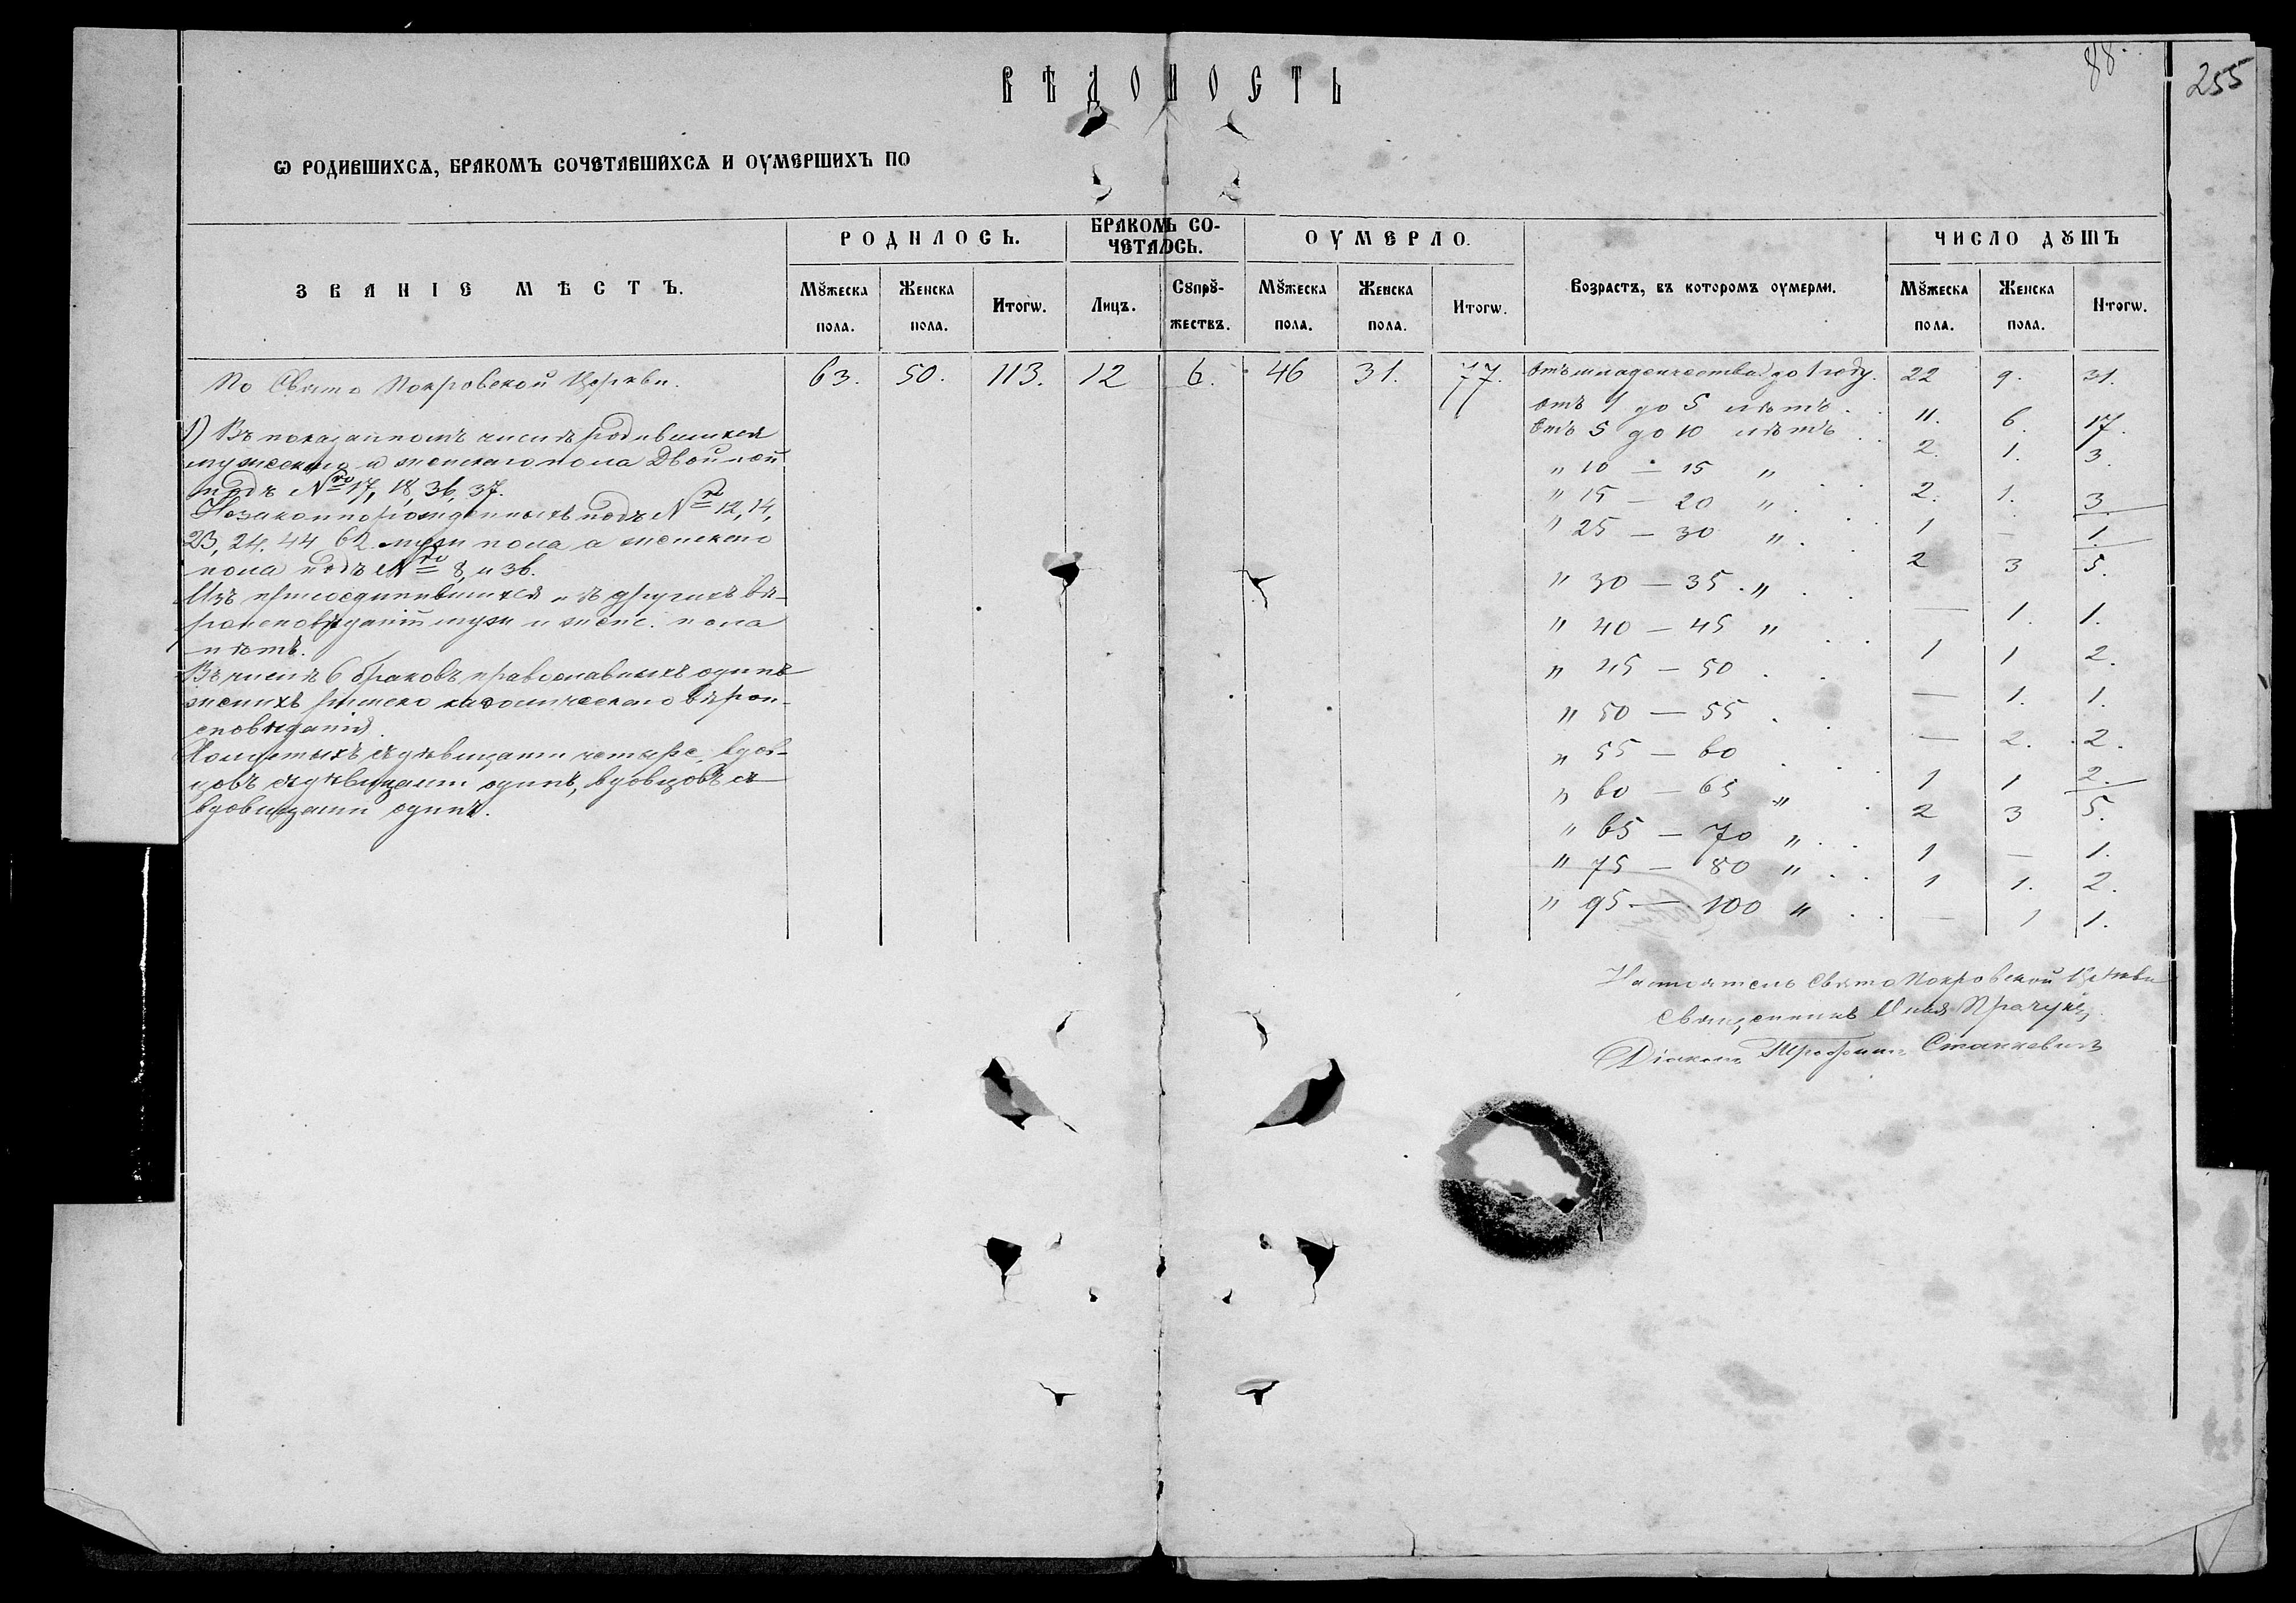 88.
255
ВѢДОМОСТЬ
Ѡ РОДИВШИХСѦ, БРАКОМЪ СОЧЕТАВШИХСѦ И ОУМЕРШИХЪ ПО
ЗВАНІЕ МѢСТЪ.
РОДИЛОСЬ.
БРАКОМЪ СО-
ЧЕТАЛОСЬ.
ОУМЕРЛО.
Возрастъ, въ которомъ оумерли.
ЧИСЛО ДꙊШЪ
Мꙋжеска пола.
Женска пола.
Итогѡ.
Лицъ.
Сꙋпрꙋ-
жествъ.
Мꙋжеска пола.
Женска пола.
Итогѡ.
Мꙋжеска пола.
Женска пола.
Итогѡ.
По Свято Покровской Церкви. 63. 50. 113. 12 6. 46 31. 77.
1) Въ показанномъ числѣ родившихся
мужескаго и женскаго пола двойней
подъ № 17, 18, 36, 37.
Незаконнорожденныхъ подъ № 12, 14,
23, 24. 44 62. муж пола а женскаго
пола подъ № 8, и 36.
Изъ присоединившихся изъ другихъ вѣ-
роисповѣданій муж и женс. пола
нѣтъ.
Въ числѣ 6 браковъ православныхъ одинъ
женихъ римско католическаго вѣрои-
сповѣданія.
Холостыхъ съ дѣвицами четыре, вдов-
цовъ съ дѣвицами одинъ, вдовцовъ съ
вдовицами одинъ.
Отъ младенчества до 1 году. 22 9. 31.
Отъ 1 до 5 лѣтъ . . 11. 6. 17.
Отъ 5 до 10 лѣтъ . . 2. 1. 3.
" 10 — 15 " . . 2. 1. 3.
" 15 — 20 " . . 1 — 1.
" 25 — 30 " . . 2 3 5.
" 30 — 35 . " . . — 1. 1.
" 40 — 45 " . . 1 1 2.
" 45 — 50 . . — 1. 1.
" 50 — 55 . — 2. 2.
" 55 — 60 . . . 1 1 2.
" 60 — 65 " . 2 3 5.
" 65 — 70 " . . 1 — 1.
" 75 — 80 " . . 1 1. 2.
" 95 — 100 " . . — 1 1.
Настоятель Свято Покровской Церкви
Священникъ Илія
Діаконъ Трофимъ Станкевичъ